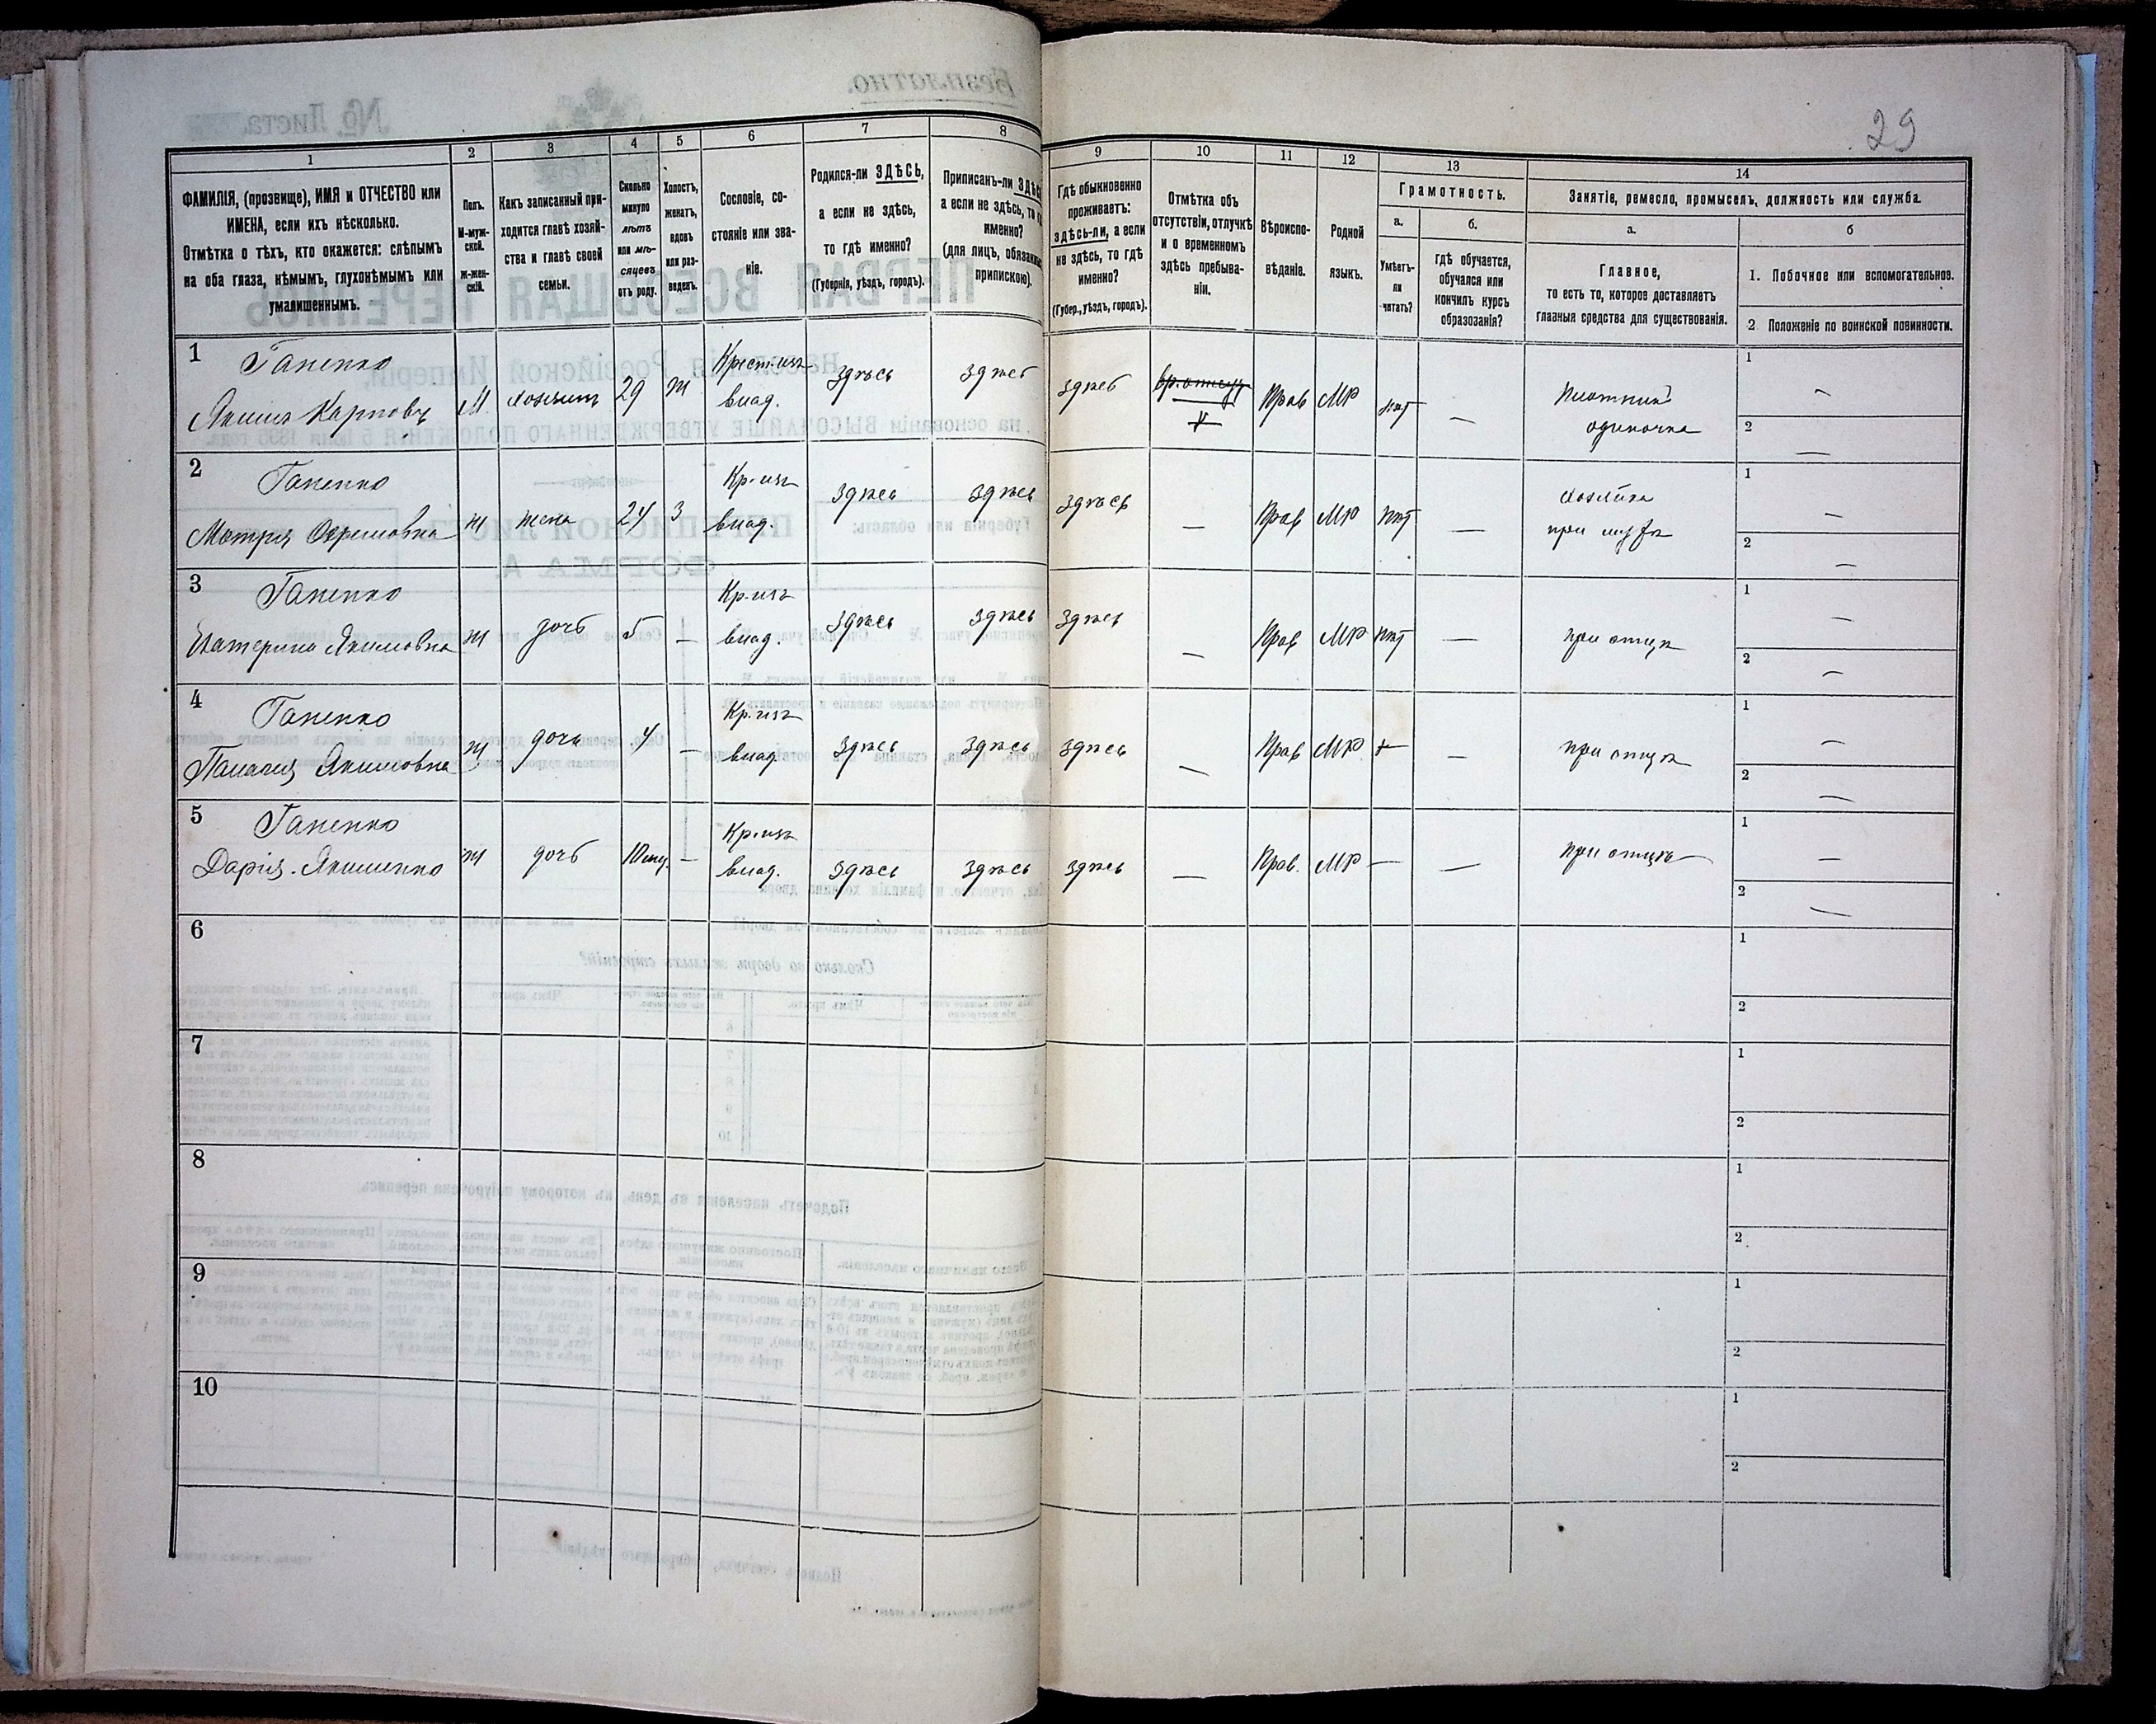 29
1
2
3
4
5
6
7
8
9
10
11
12
13
14
ФАМИЛІЯ, (прозвище), ИМЯ и ОТЧЕСТВО или
ИМЕНА, если ихъ нѣсколько.
Отмѣтка о тѣхъ, кто окажется: слѣпымъ
на оба глаза, нѣмымъ, глухонѣмымъ или
умалишеннымъ.
Полъ.
М-муж-
ской.
Ж-жен-
скій.
Какъ записанный при-
ходится главѣ хозяй-
ства и главѣ своей
семьи.
Сколько
минуло
лѣтъ
или мѣ-
сяцевъ
отъ роду.
Холостъ,
женатъ,
вдовъ
или раз-
веденъ.
Сословіе, со-
стояніе или зва-
ніе.
Родился-ли ЗДѢСЬ,
а если не здѣсь,
то гдѣ именно?
(Губернія, уѣздъ, городъ).
Приписанъ-ли
а если не здѣсь,
именно?
(для лицъ,
припискою).
Гдѣ обыкновенно
проживаетъ:
здѣсь-ли, а если
не здѣсь, то гдѣ
именно?
(Губер., уѣздъ, городъ).
Отмѣтка объ
отсутствіи, отлучкѣ
и о временномъ
здѣсь пребыва-
ніи.
Вѣроиспо-
вѣданіе.
Родной
языкъ.
Грамотность.
а.
Умѣетъ-
ли
читать?
б.
гдѣ обучается,
обучался или
кончилъ курсъ
образозанія?
Занятіе, ремесло, промыселъ, должность или служба.
а.
Главное,
то есть то, которое доставляетъ
главныя средства для существованія.
б
1. Побочное или вспомогательное.
2 Положеніе по воинской повинности.
1
Гапенко
Крест. изъ
Якимъ Карповъ М. хозяинъ 29 ж влад. здѣсь здѣсь здѣсь Прав МР нѣт — Плотник
одиночка
1 —
2 —
2
Гапенко
Кр. изъ
Мотря Охримовна ж жена 24 З влад. здѣсь здѣсь здѣсь — Прав МР нѣт — хозяйка
при мужѣ
1 —
2 —
3
Гапенко
Кр. изъ
Екатерина Якимовна ж дочь 5 — влад. здѣсь здѣсь здѣсь — Прав МР нѣт — при отцѣ
1 —
2 —
4
Гапенко
Кр. изъ
Палагия Якимовна ж дочь 4 — влад. здѣсь здѣсь здѣсь — Прав МР — при отцѣ
1 —
2 —
5
Гапенко
Кр. изъ
Дарія Якименко ж дочь 10 — влад. здѣсь здѣсь здѣсь — Прав. МР — — при отцѣ
1 —
2 —
6
1
2
7
1
2
8
1
2
9
1
2
10
1
2